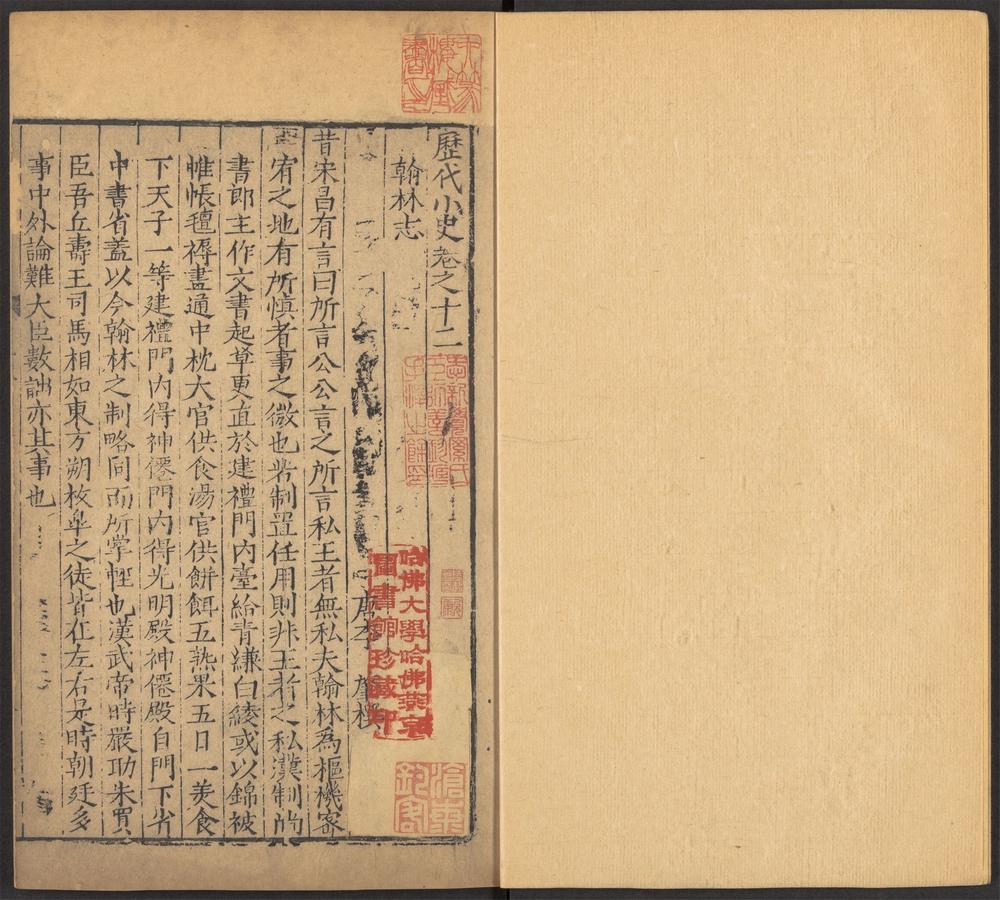 歷代小史卷之十二
翰林志
唐李肇撰
昔宋昌有言曰所言公公言之所言私王者無私夫翰林爲樞機密
宥之地有所慎者事之微也若制置任用則非王者之私漢制尚
書郎主作文書起草更直於建禮門內臺給青縑白綾或以錦被
帷帳氊褥畫通中枕大官供食湯官供餅餌五熟果五日一美食
下天子一等建禮門內得神僊門內得光明殿神僊殿自門下省
中書省蓋以今翰林之制略同而所掌輕也漢武帝時嚴助朱買
臣吾丘壽王司馬相如東方朔枚皐之徒皆在左右是時朝廷多
事中外論難大臣數詘亦其事也
哈佛大學哈佛燕京
圖書館珍藏印